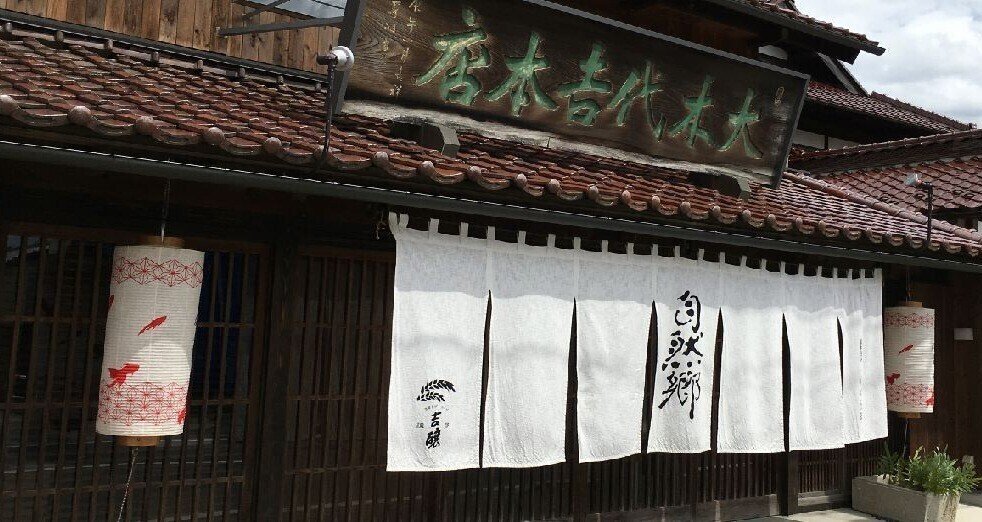 大木代吉本店
自然郷
吉醸